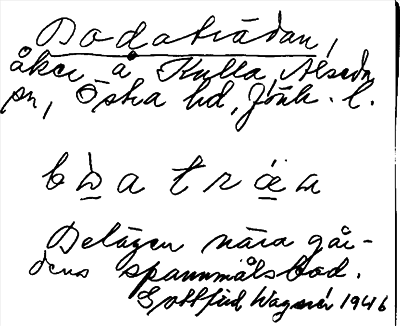 Bodaträdan,
åker å Kulla, Alseda
sn, Östra hd, Jönk. l.
Belägen nära går-
dens spannmålsbod.
Gottfrid Wagnér 1946